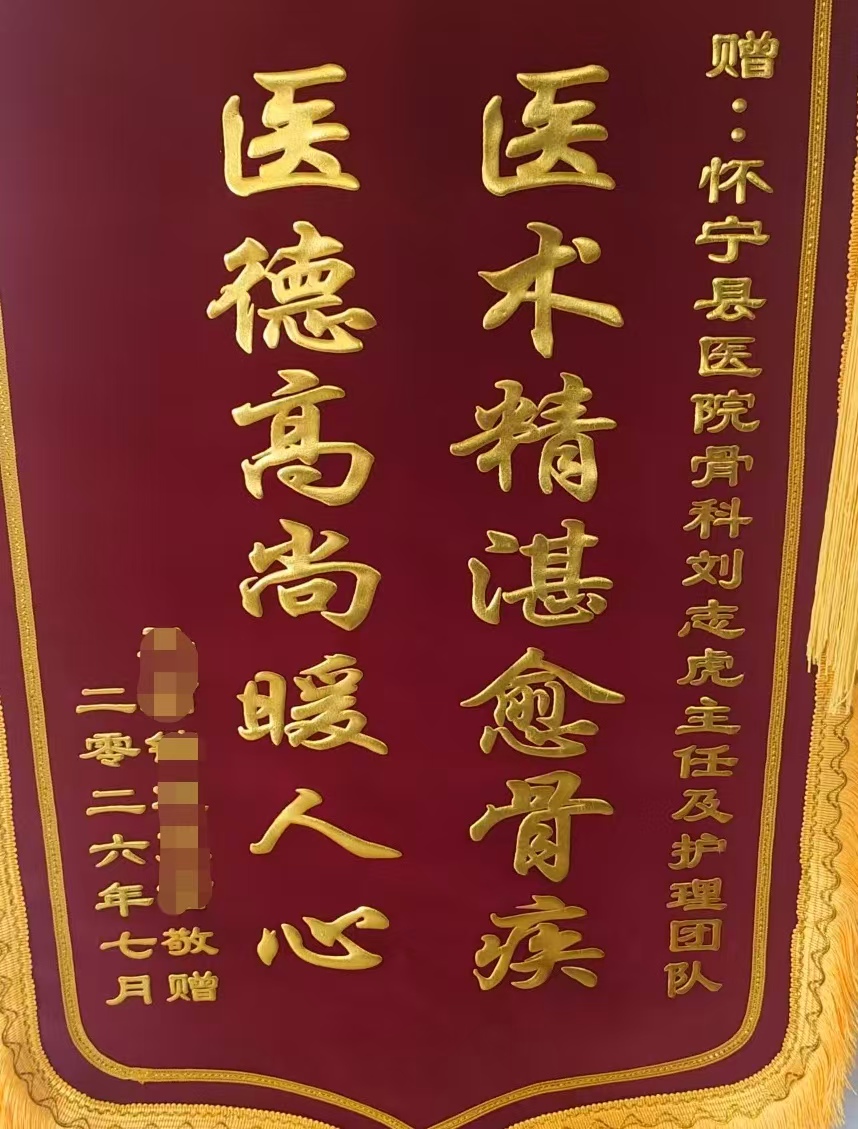 赠：怀宁县医院骨科刘志虎主任及护理团队
医术精湛愈骨疾
医德高尚暖人心
敬赠
二零二六年七月